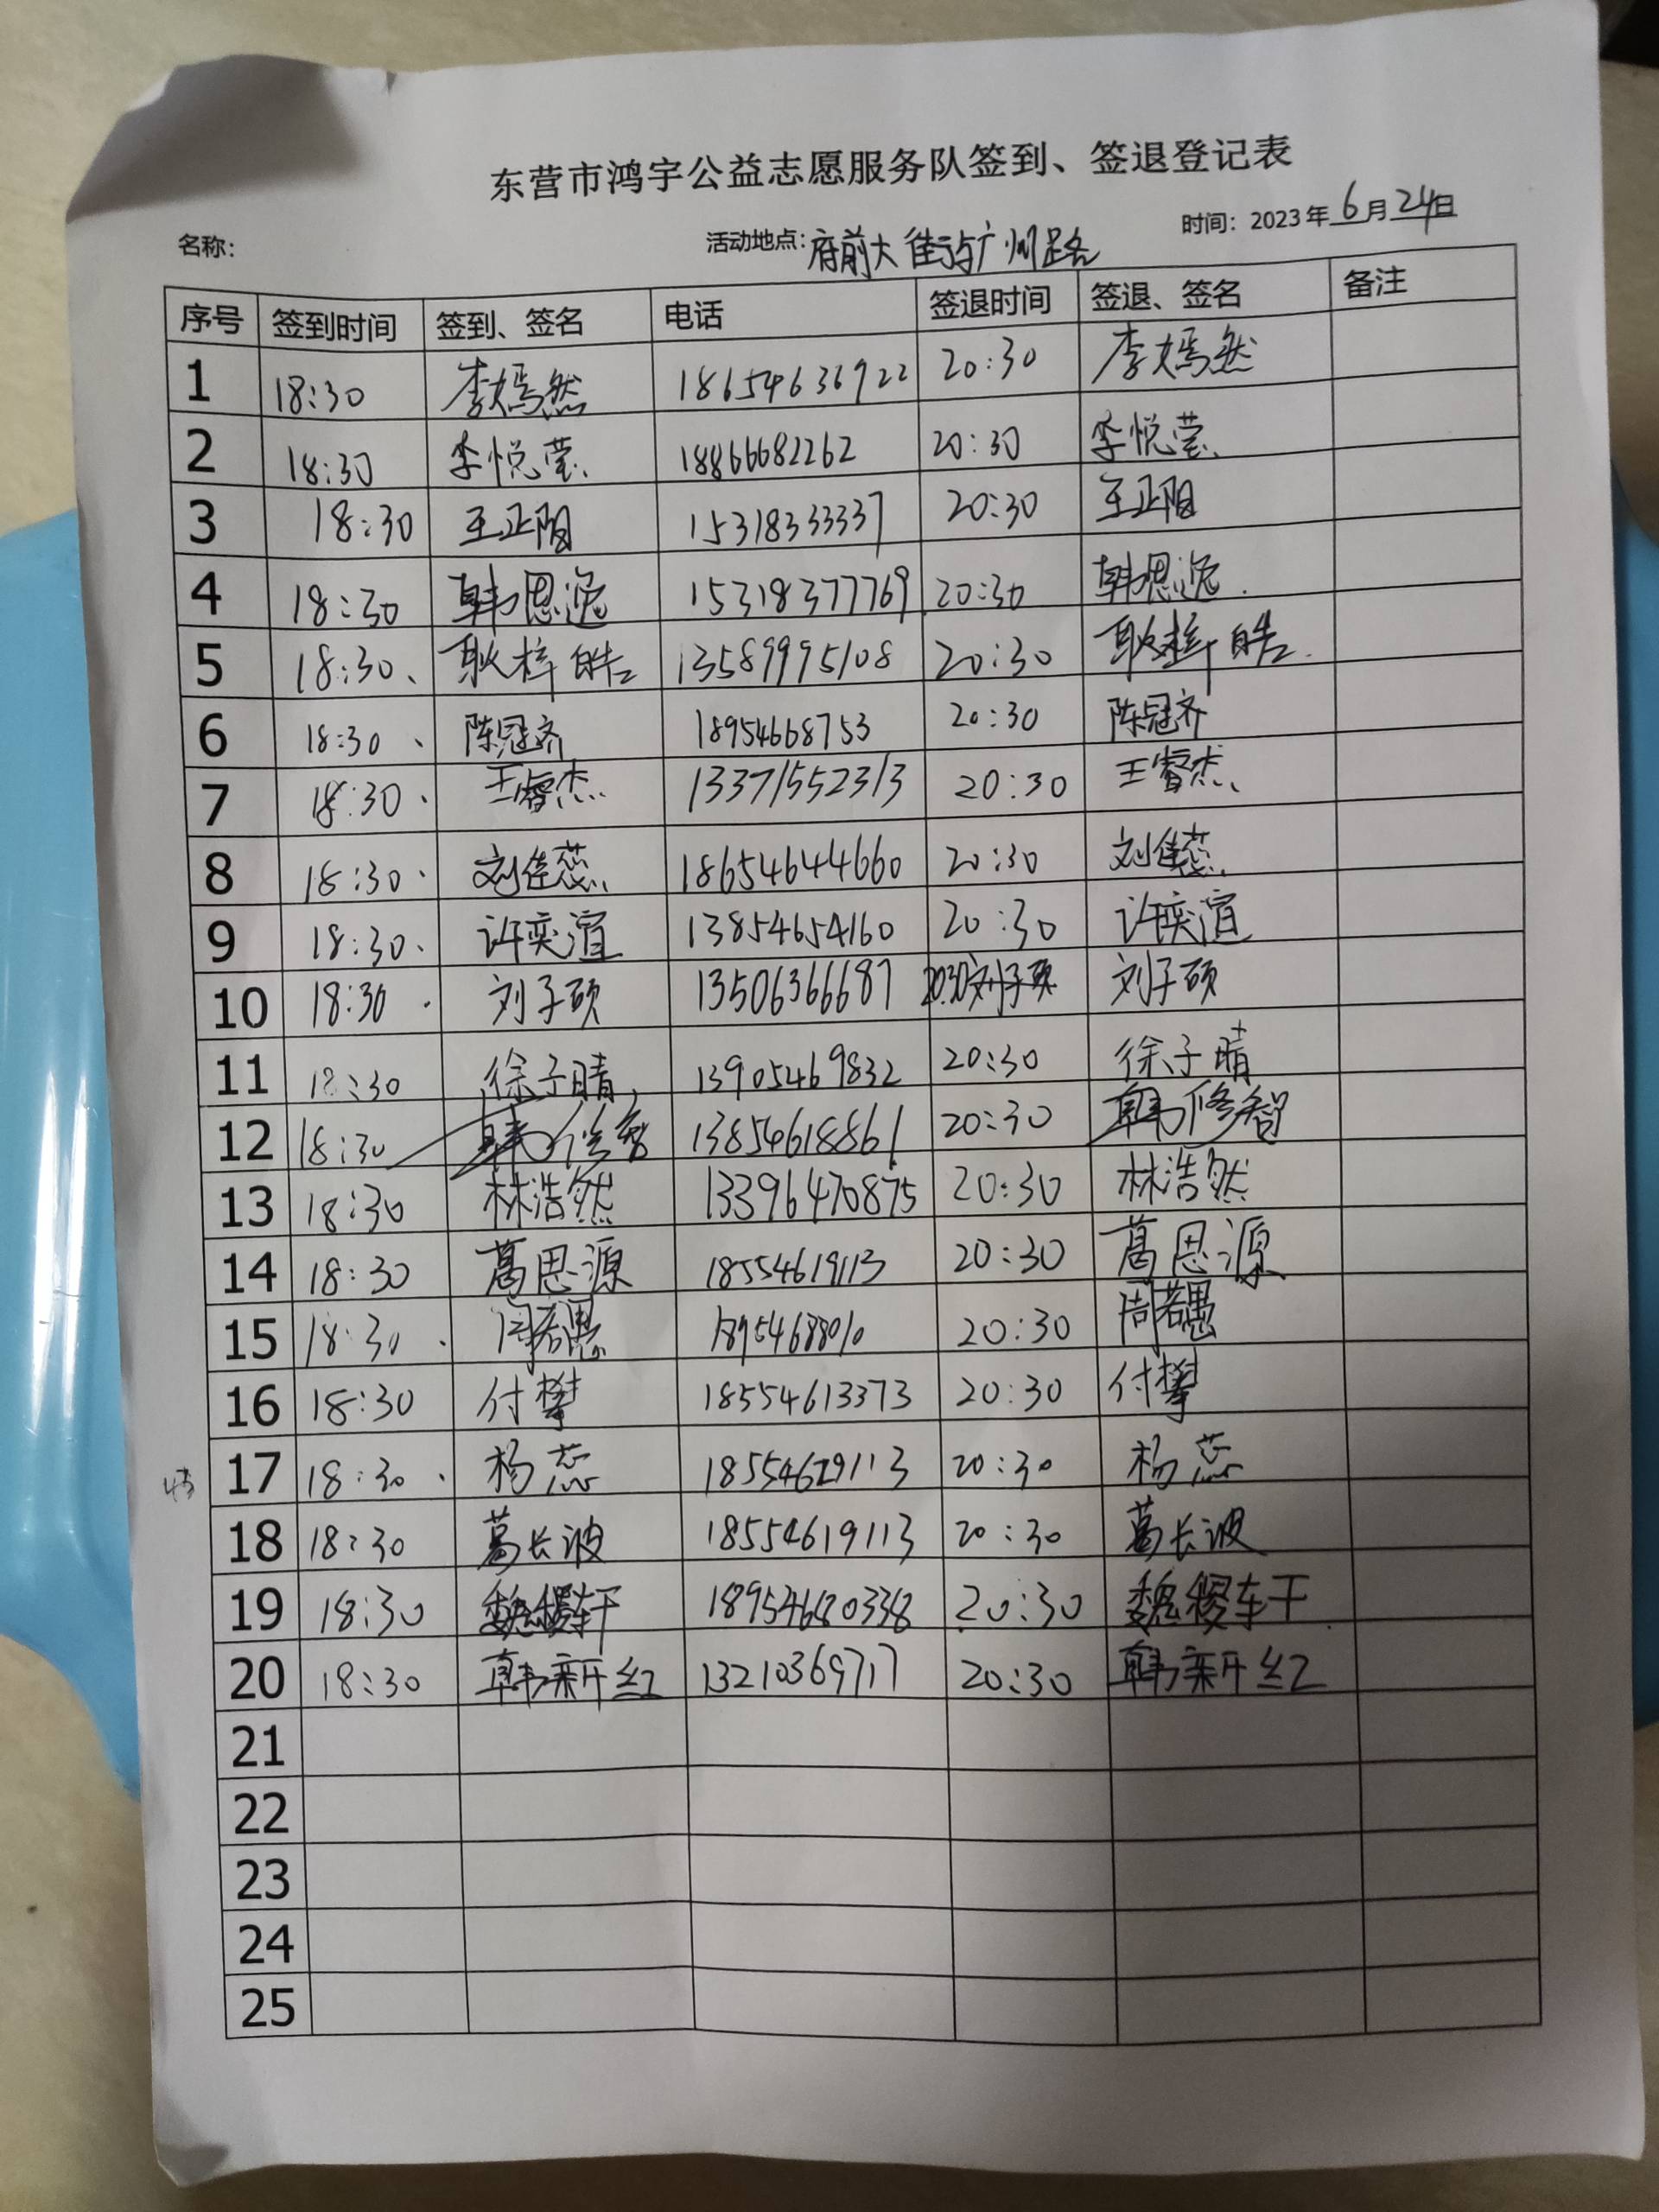 东营市鸿宇公益志愿服务队签到、签退登记表
名称: 活动地点:府前大街与广州路 时间：2023年6月24日
序号 签到时间 签到、签名 电话 签退时间 签退、签名 备注
1 18:30 李嫣然 18654636922 20:30 李嫣然
2 18:30 李悦莹 18866682262 20:30 李悦莹
3 18:30 王正阳 15318333337 20:30 王正阳
4 18:30 韩思逸 15318377769 20:30 韩思逸
5 18:30 耿梓皓 13589995108 20:30 耿梓皓
6 18:30 陈冠齐 18954668753 20:30 陈冠齐
7 18:30 王睿杰 13371552313 20:30 王睿杰
8 18:30 刘佳蕊 18654644660 20:30 刘佳蕊
9 18:30 许奕渲 13854654160 20:30 许奕渲
10 18:30 刘子硕 13506366687 20:30 刘子硕 刘子硕
11 18:30 徐子晴 13905469832 20:30 徐子晴
12 18:30 韩修智 13854618861 20:30 韩修智
13 18:30 林浩然 13396470875 20:30 林浩然
14 18:30 葛思源 18554619113 20:30 葛思源
15 18:30 周若愚 18954688010 20:30 周若愚
16 18:30 付攀 18554613373 20:30 付攀
17 18:30 杨蕊 18554619113 20:30 杨蕊
18 18:30 葛长波 18554619113 20:30 葛长波
19 18:30 魏稷轩 20:30 魏稷轩
20 18:30 韩新红 13210369717 20:30 韩新红
21
22
23
24
25